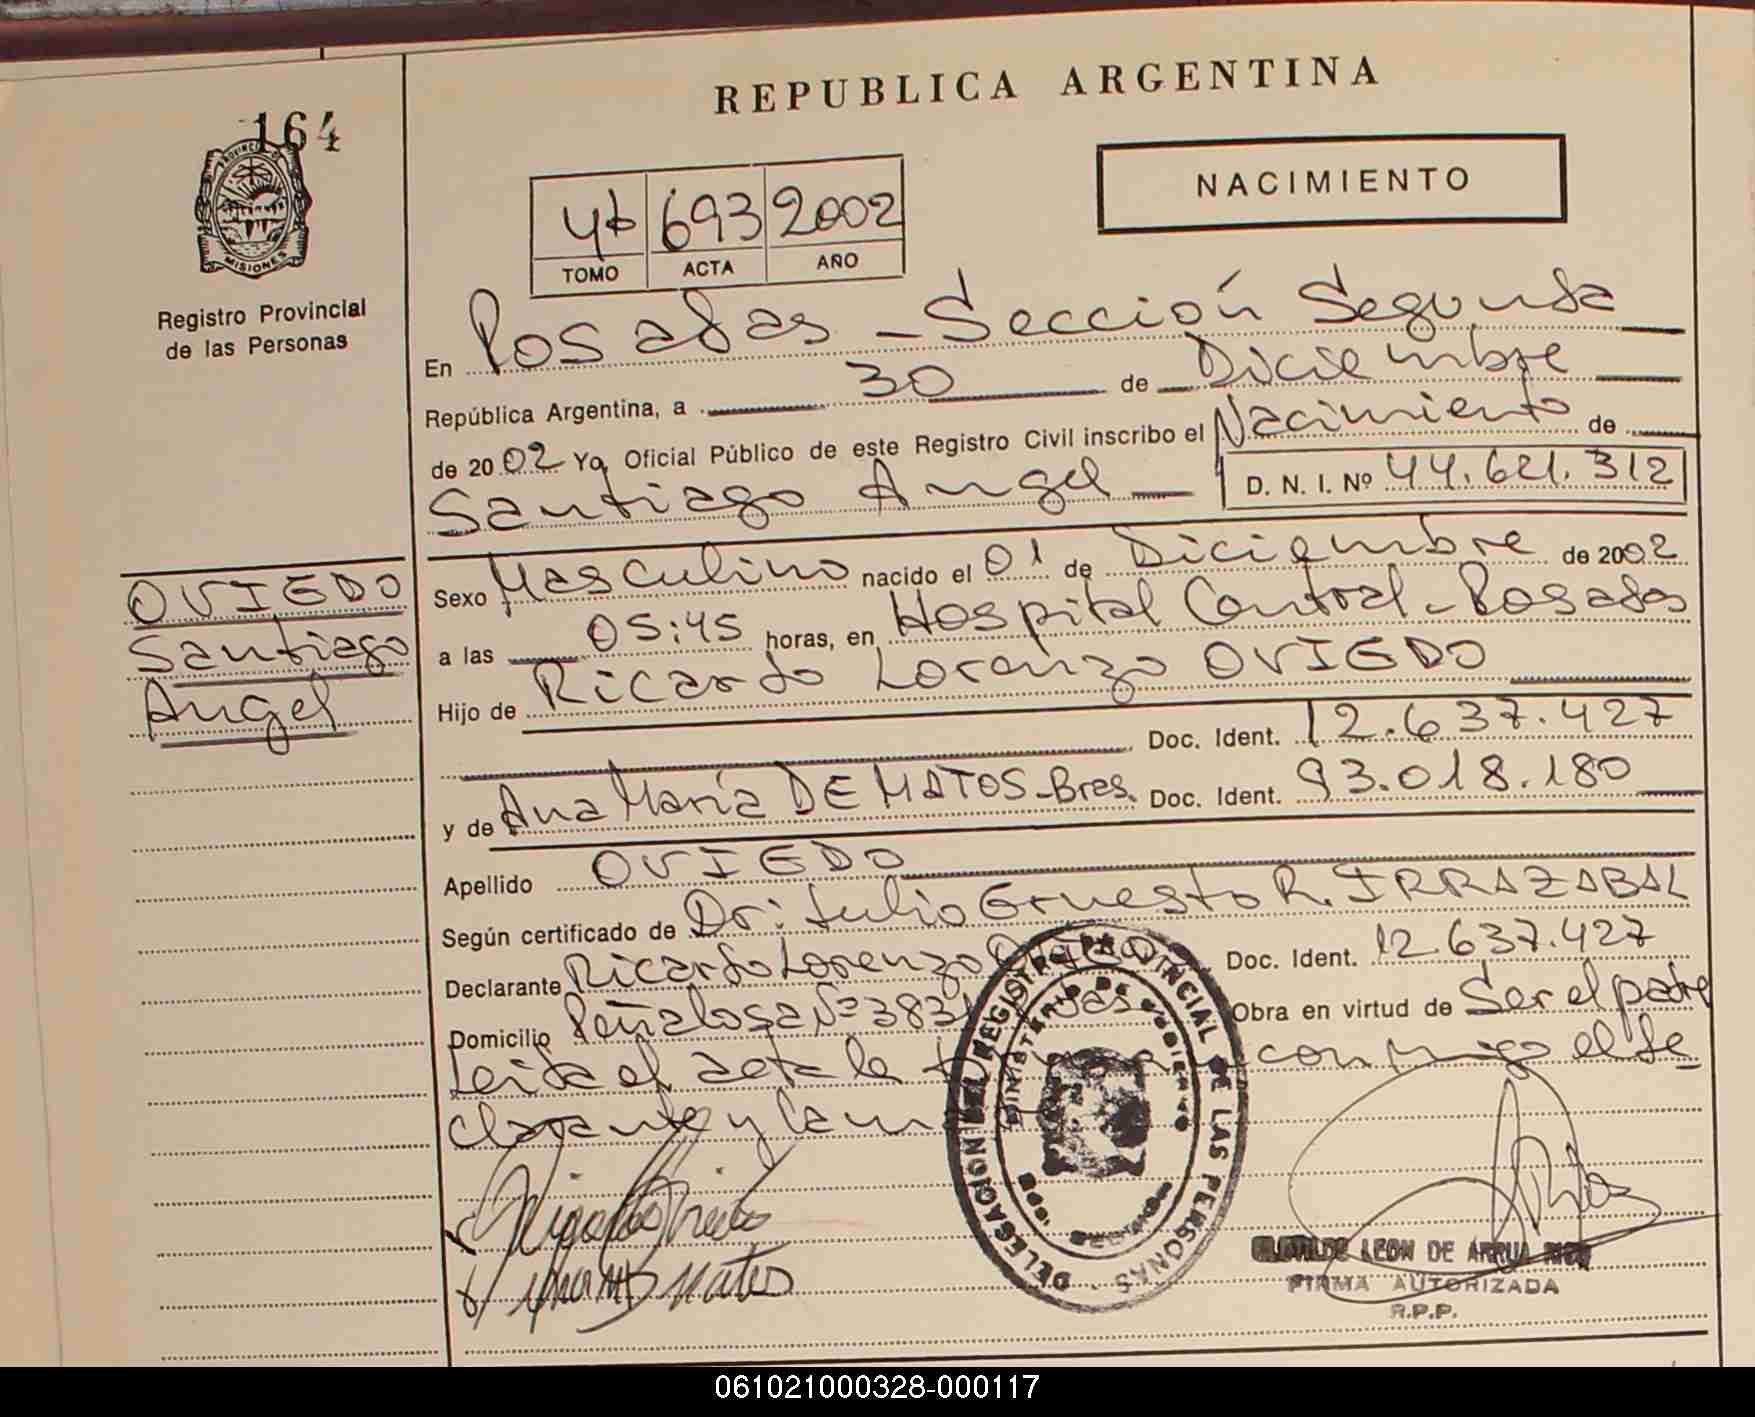 REPUBLICA ARGENTINA
164
PROVINCIA DE
MISIONES
NACIMIENTO
4b 693 2002
TOMO ACTA AÑO
Registro Provincial
de las Personas
En Posadas - Sección Segunda
República Argentina, a 30 de Diciembre
de 2002 Yo, Oficial Público de este Registro Civil inscribo el Nacimiento de
Santiago Angel D. N. I. Nº 44.621.312
OVIEDO
Santiago
Angel
Sexo Masculino nacido el 01 de Diciembre de 2002
a las 05:45 horas, en Hospital Central - Posadas
Hijo de Ricardo Lorenzo OVIEDO
Doc. Ident. 12.637.427
y de Ana María DE MATOS - Bras. Doc. Ident. 93.018.180
Apellido OVIEDO
Según certificado de Dr: Julio Ernesto R. IRRAZABAL
Declarante Ricardo Lorenzo Doc. Ident. 12.637.427
Domicilio Peñalosa Nº 3831 Obra en virtud de Ser el padre
Leida el acta la conmigo el de
clarante y la
DELEGACION DEL REGISTRO PROVINCIAL DE LAS PERSONAS
MINISTERIO DE GOBIERNO
LEON DE ARRUA
FIRMA AUTORIZADA
R.P.P.
061021000328-000117